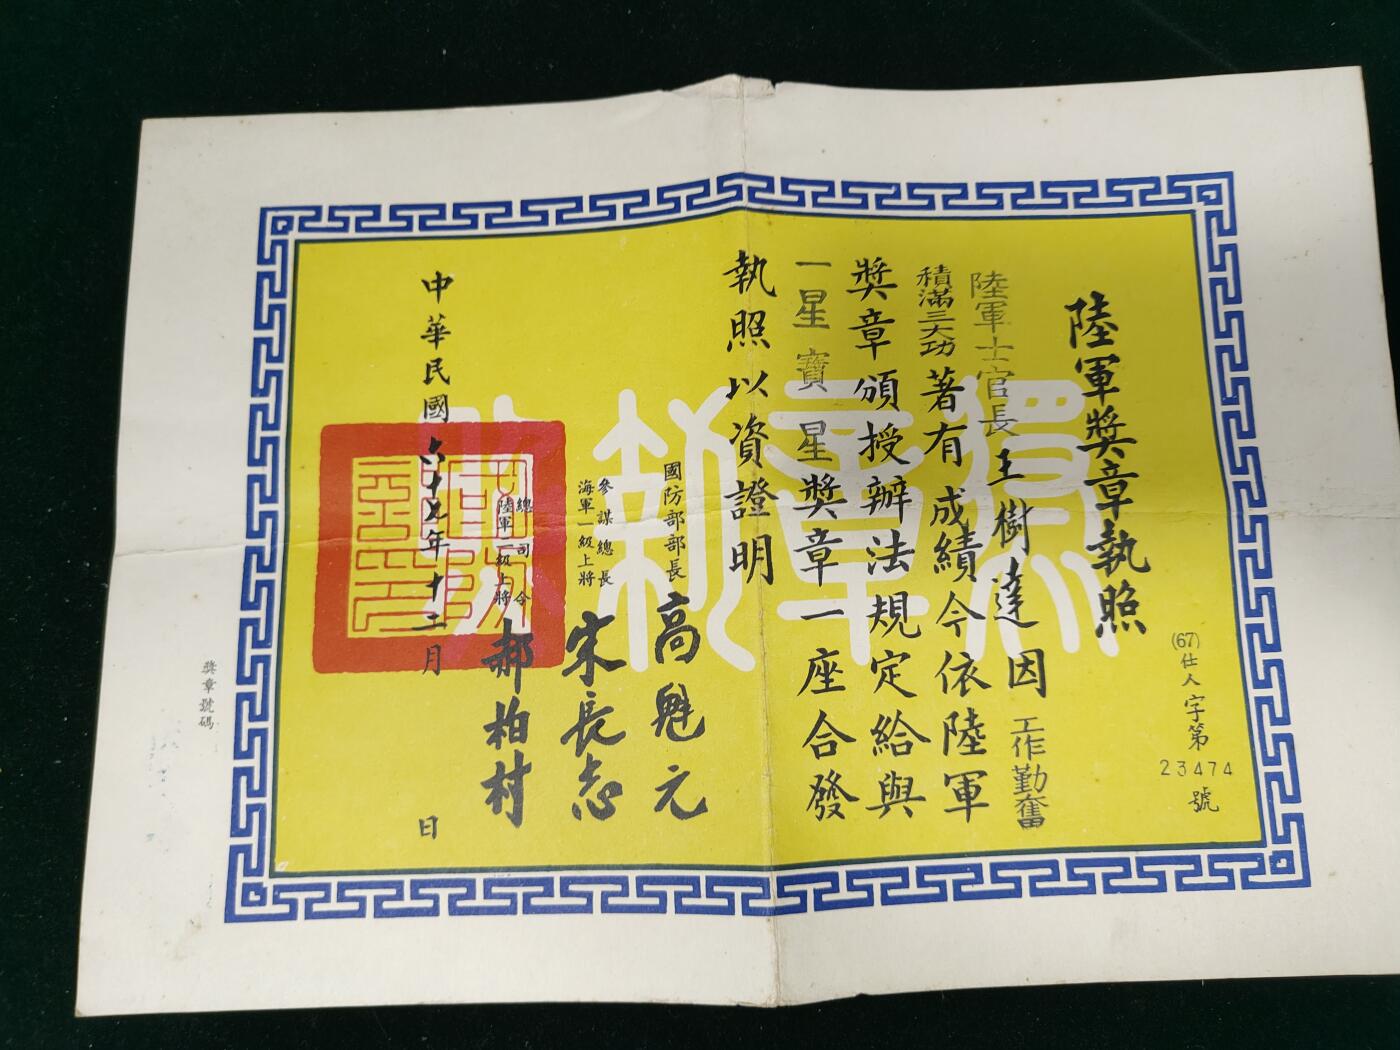 陸軍獎章執照
(67)仕人字第23474號
陸軍士官長王樹達因工作勤奮
積滿三大功著有成績今依陸軍
獎章頒授辦法規定給與
一星寶星獎章一座合發
執照以資證明
國防部部長高魁元
參謀總長
海軍一級上將
宋長志
總司令
陸軍一級上將
郝柏村
中華民國六十七年十二月日
獎章號碼